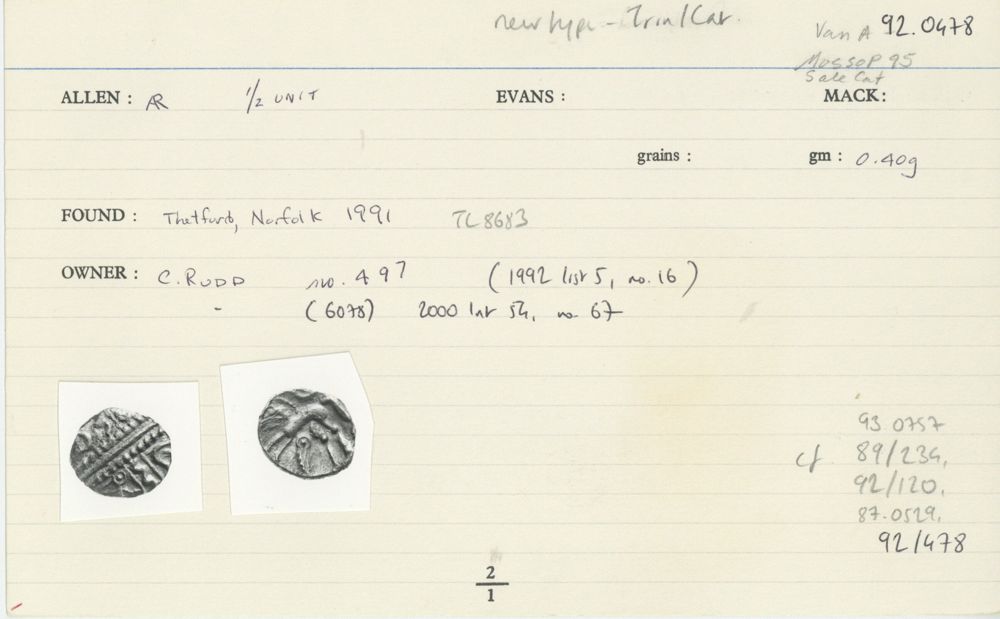 new type - Trin/Cat.
Van A 92.0478
Mossop 95
Sale Cat
ALLEN : AR 1/2 UNIT EVANS : MACK:
grains : gm : 0.40g
FOUND : Thetford, Norfolk 1991 TL8683
OWNER : C. RUDD no. 497 (1992 list 5, no. 16)
- (6078) 2000 list 54, no 67
93.0757
cf 89/234,
92/120,
87.0529,
92/478
2
1